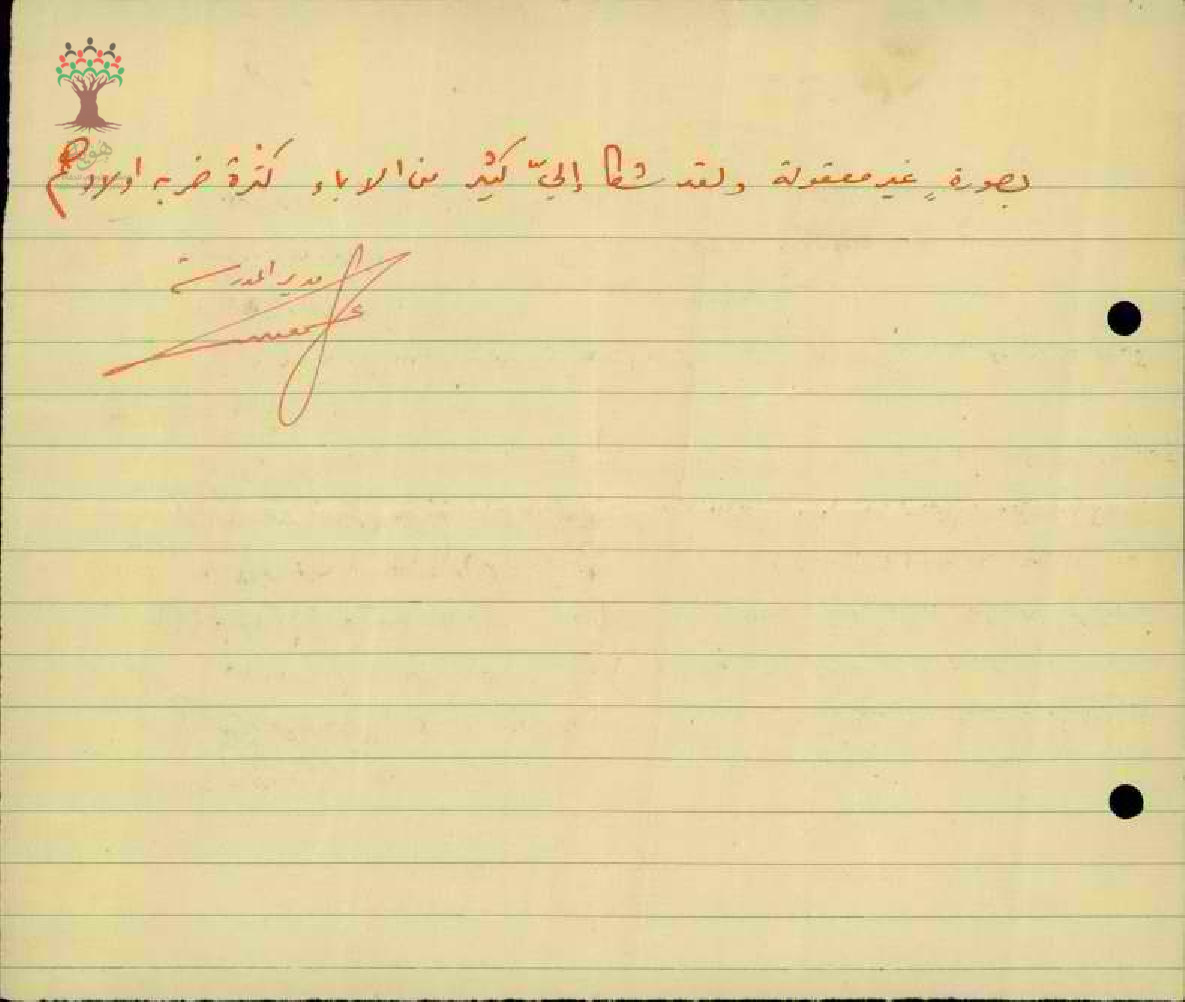 بصورةٍ غير معقولة ولقد شكا إليّ كثير من الاباء كثرة ضربه اولادهم
مدير المدرسة